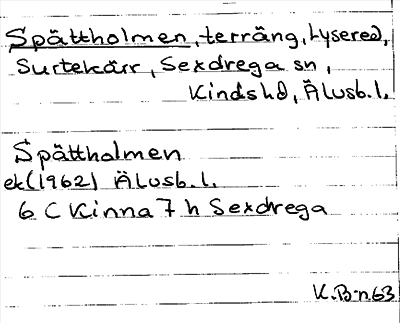 Spättholmen, terräng, Lysered,
Surtekärr, Sexdrega sn,
Kinds hd, Älvsb.l.
Spättholmen
ek (1962) Älvsb.l.
6 C Kinna 7 h Sexdrega
K.B-n.63